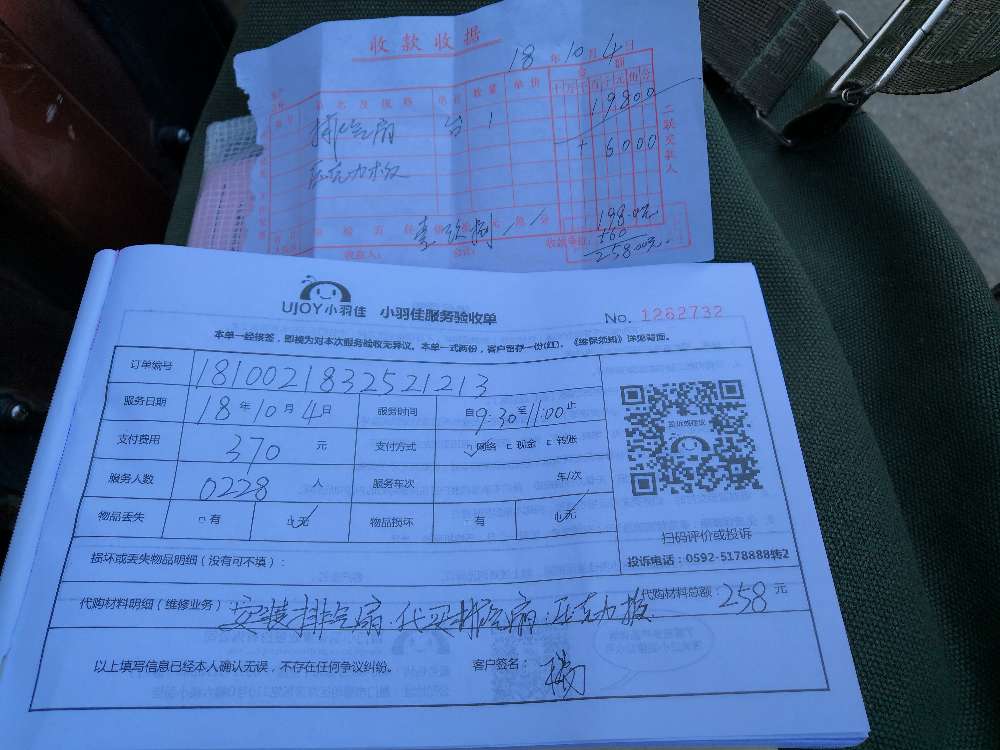 收款收据
18 年 10 月 4 日
品名及规格 单位 数量 单价 金额
千 百 十 元 角 分
排气扇 台 1 19800
亚克力板 + 6000
198.0元
收款人： 收款单位
258.00元
二联交款人
UJOY小羽佳 小羽佳服务验收单 No. 1262732
本单一经接签，即视为对本次服务验收无异议。本单一式两份，客户留存一份(红)，《维保须知》详见背面。
订单编号 1810021832521213
服务日期 18 年 10 月 4 日 服务时间 自 9:30 至 11:00 止
支付费用 370 元 支付方式 网络 现金 转账
服务人数 0228 人 服务车次 车/次
物品丢失 有 无 物品损坏 有 无
扫码评价或投诉
投诉电话：0592-5178888转2
损坏或丢失物品明细（没有可不填）：
代购材料明细（维修业务） 安装排气扇.代买排气扇.亚克力板 代购材料总额：258 元
以上填写信息已经本人确认无误，不存在任何争议纠纷。 客户签名：